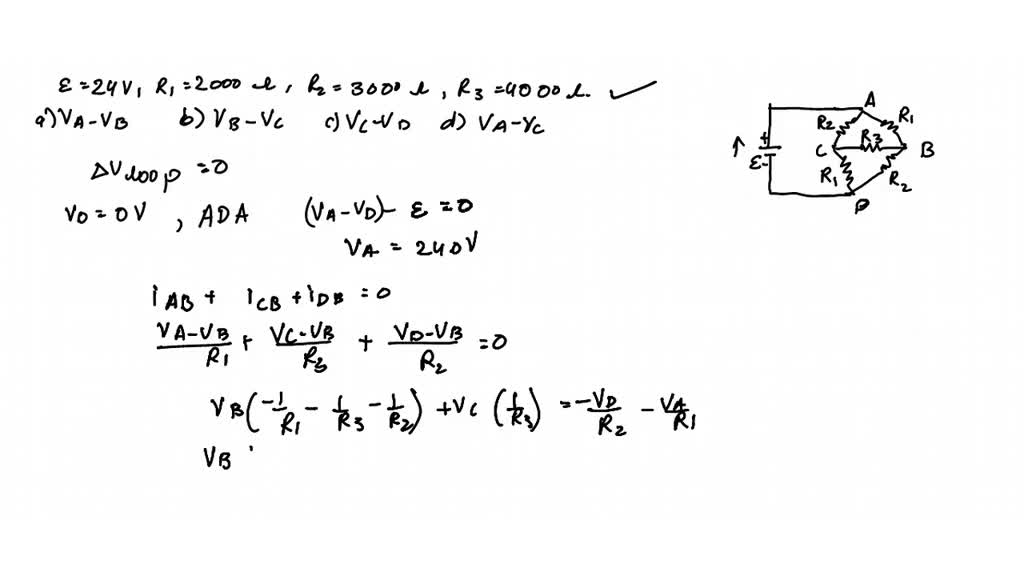 ε = 24V, R₁ = 2000 Ω, R₂ = 3000 Ω, R₃ = 4000 Ω. ✓
a) VA-VB b) VB-VC c) VC-VD d) VA-VC
ΔVloop = 0
VD = 0V, ADA (VA-VD) - ε = 0
VA = 240V
iAB + iCB + iDB = 0
(VA-VB)/R₁ + (VC-VB)/R₃ + (VD-VB)/R₂ = 0
VB(-1/R₁ - 1/R₃ - 1/R₂) + VC(1/R₃) = -VD/R₂ - VA/R₁
VB
A
R₂ R₁
+ R₃
↑ ε- C B
R₁ R₂
D